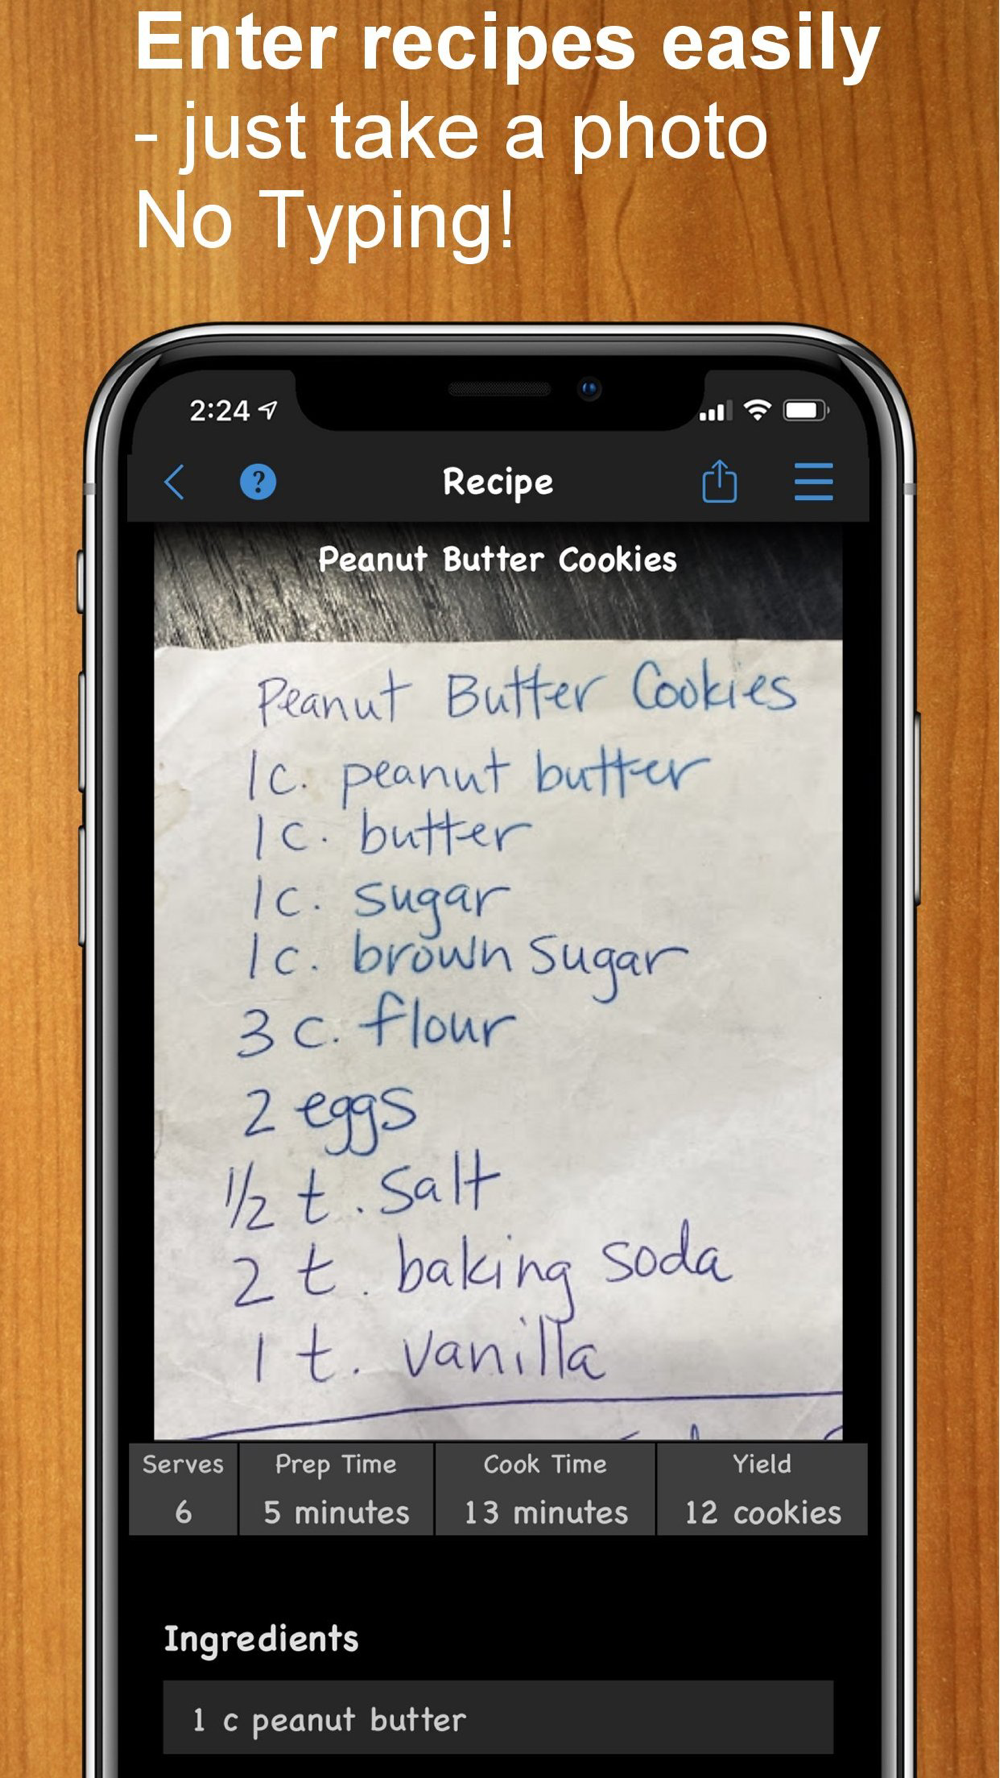 Enter recipes easily
- just take a photo
No Typing!
2:24
? Recipe
Peanut Butter Cookies
Peanut Butter Cookies
1c. peanut butter
1c. butter
1c. sugar
1c. brown sugar
3 c. flour
2 eggs
1/2 t. salt
2 t. baking soda
1 t. vanilla
Serves Prep Time Cook Time Yield
6 5 minutes 13 minutes 12 cookies
Ingredients
1 c peanut butter